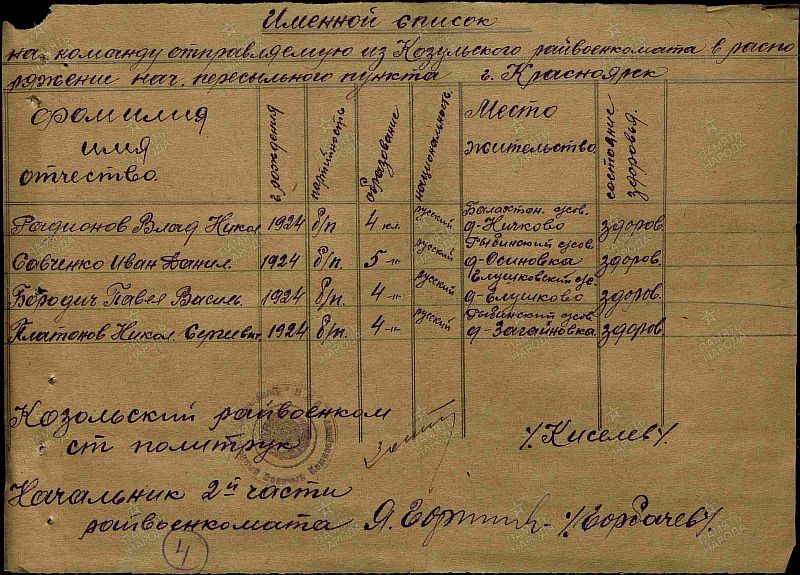 Именной список
на команду отправляемую из Козульского райвоенкомата в распо
ряжение нач. пересыльного пункта г. Красноярск
фамилия имя отчество
г. рождения
партийность
образование
национальность
Место жительство
состояние здоровья.
Радионов Влад Никол 1924 б/п 4 кл. русский Балахтон. с/сов. д-Ничково здоров.
Савченко Иван Данил. 1924 б/п. 5 -"- русский Рыбинский с/сов. д-Осиновка здоров.
Бородич Павел Василь 1924 б/п. 4 -"- русский Глушковский с/с. д-Глушково здоров.
Платонов Никол. Сергеевич 1924 б/п. 4 -"- русский Рыбинский с/сов. д-Загайновка здоров.
Козольский райвоенком
ст политрук /Киселев/.
Начальник 2й части
райвоенкомата /Горбачев/.
4
ПАМЯТЬ НАРОДА